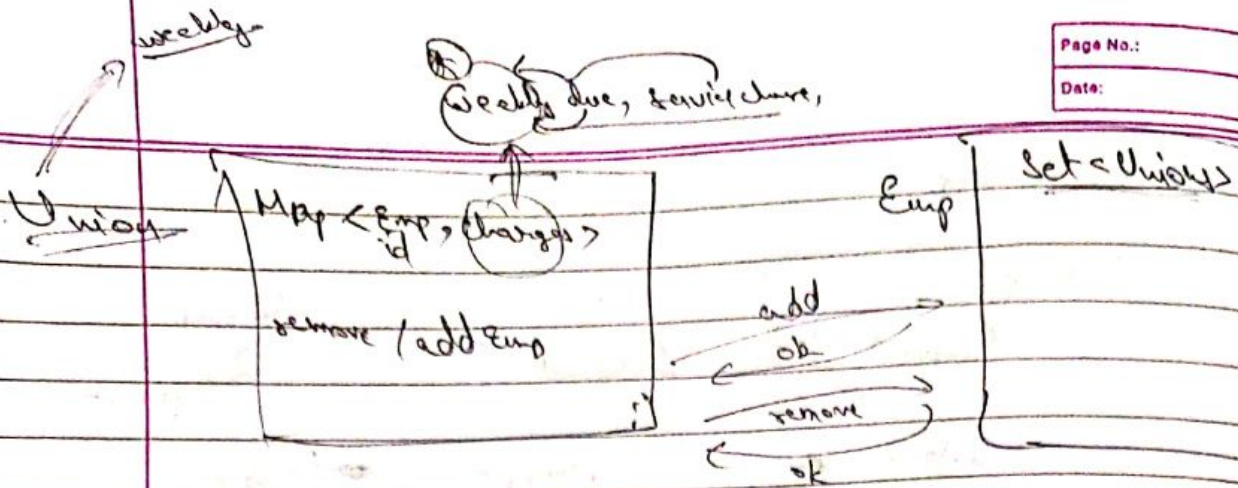 weekly
Page No.:
Date:
Weekly due, service charge,
Union
Map < Emp id, Charges >
remove / add Emp
Emp
Set <Unions>
add
ok
remove
ok